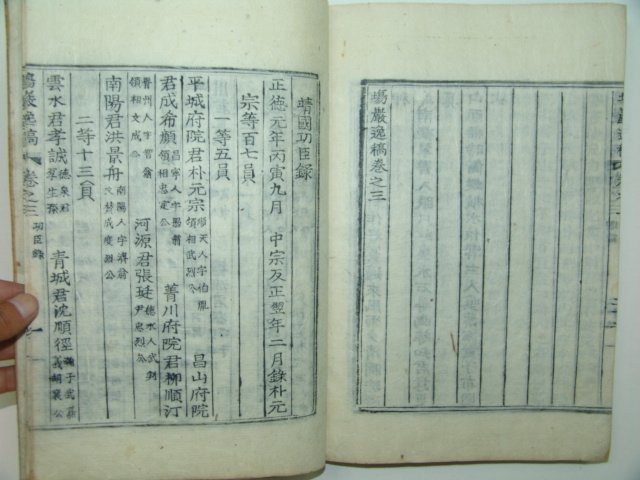 塢巖逸稿卷之三
靖國功臣錄
正德元年丙寅九月 中宗反正翌年二月錄朴元
宗等百七員
一等五員
平城府院君朴元宗 順天人字伯胤 領相武烈公 昌山府院
君成希顔 昌寧人字愚翁 領相忠定公 菁川府院君柳順汀
晋州人字智翁 領相文成公 河源君張珽 德水人武 尹忠烈公
南陽君洪景舟 南陽人字濟翁 文贊成度烈公
二等十三員
雲水君孝誠 德泉君 厚生孫 青城君沈順徑 子武 襄公
塢巖逸稿 卷之三 功臣錄